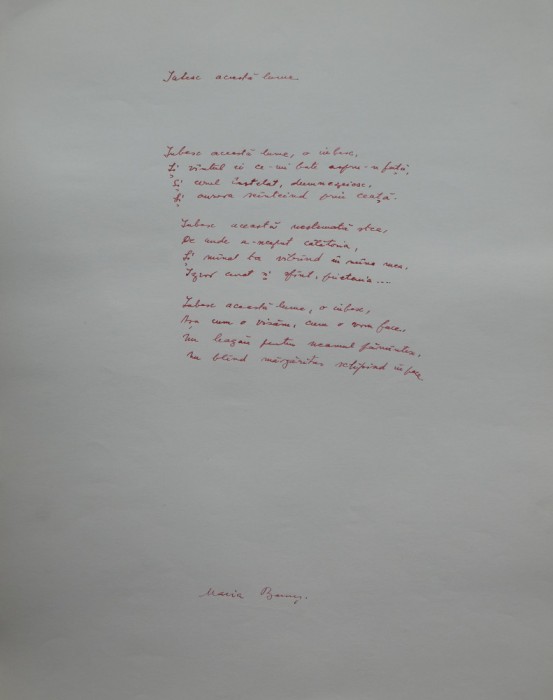 Iubesc această lume
Iubesc această lume, o iubesc,
Și vîntul ei ce-mi bate aspru-n față,
Și cerul înstelat, dumnezeiesc,
Și aurora scînteind prin ceață.
Iubesc această nestemată stea,
De unde a-nceput călătoria,
Și mîna ta vibrînd în mîna mea,
Izvor curat și sfînt, prietenia...
Iubesc această lume, o iubesc,
Așa cum o visăm, cum o vom face,
Un leagăn pentru neamul pămîntesc,
Un blînd mărgăritar sclipind în pace.
Maria Banuș.